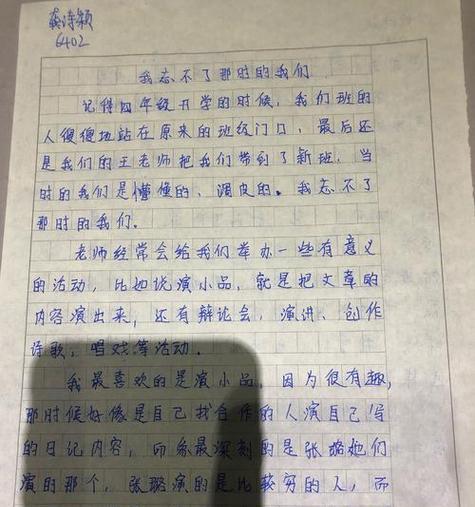 龚诗颖
6402
我忘不了那时的我们
记得四年级开学的时候，我们班的
人傻傻地站在原来的班级门口，最后还
是我们的王老师把我们带到了新班，当
时的我们是懵懂的、调皮的。我忘不了
那时的我们。
老师经常会给我们举办一些有意义
的活动，比如说演小品，就是把文章的
内容演出来，还有辩论会，演讲、创作
诗歌，唱戏等活动．
我最喜欢的是演小品，因为很有趣，
那时候好像是自己找合作的人演自己写
的日记内容，印象最深刻的是张璐她们
演的那个，张璐演的是比较穷的人，而